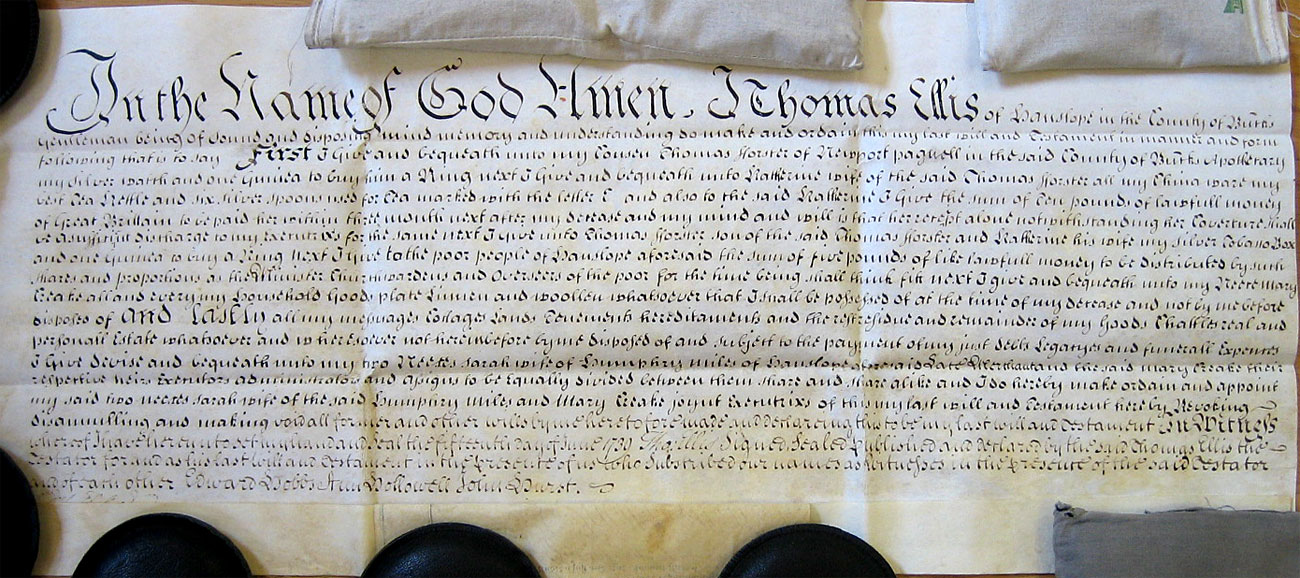 In the Name of God Amen. I Thomas Ellis of Hanslope in the County of Bucks
Gentleman being of sound and disposing mind memory and understanding do make and ordain this my last will and Testament in manner and form
following that is to say First I Give and bequeath unto my Cousen Thomas fforster of Newport pagnell in the said County of Bucks Apothecary
my Silver watch and one Guinea to buy him a Ring next I Give and bequeath unto Katherine wife of the said Thomas fforster all my China ware my
best Tea Kettle and six silver spoons used for Tea marked with the letter E and also to the said Katherine I Give the sum of Ten pounds of lawfull money
of Great Brittain to be paid her within three month next after my decease and my mind and will is that her receipt alone notwithstanding her Coverture shall
be a sufficient discharge to my executrixs for the same next I give unto Thomas fforster son of the said Thomas fforster and Katherine his wife my silver Tobacco Box
and one Guinea to buy a Ring next I Give to the poor people of Hanslope aforesaid the sum of five pounds of like lawfull money to be distributed by such
shares and proportions as the Minister Churchwardens and Overseers of the poor for the time being shall think fitt next I give and bequeath unto my Neece Mary
Creake all and every my Household Goods plate Linnen and woollen whatsoever that I shall be possessed of at the time of my decease and not by me before
disposed of And Lastly all my messuages Cottages Lands Tenements hereditaments and the rest residue and remainder of my Goods Chattles real and
personall Estate whatsoever and wheresoever not hereinbefore by me disposed of and subject to the payment of my just debts Legacyes and funerall Expences
I Give devise and bequeath unto my two Neeces Sarah wife of Humphry Miles of Hanslope aforesaid Lace Merchant and the said Mary Creake their
respective heirs Executors administrators and Assignes to be Equally divided between them share and share alike and I do hereby make ordain and appoint
my said two neeces Sarah wife of the said Humphry Miles and Mary Creake joynt Executrixs of this my last will and Testament hereby Revoking
disannulling and making void all former and other wills by me heretofore made and declareing this to be my last will and Testament In Witness
whereof I have hereunto set my hand and seal the fifteenth day of June 1730 Tho: Ellis Signed Sealed Published and declared by the said Thomas Ellis the
Testator for and as his last will and Testament in the Presence of us who Subscribed our names as witnesses in the Presence of the said Testator
and of each other Edward Hobbs Hollowell John Hurst.